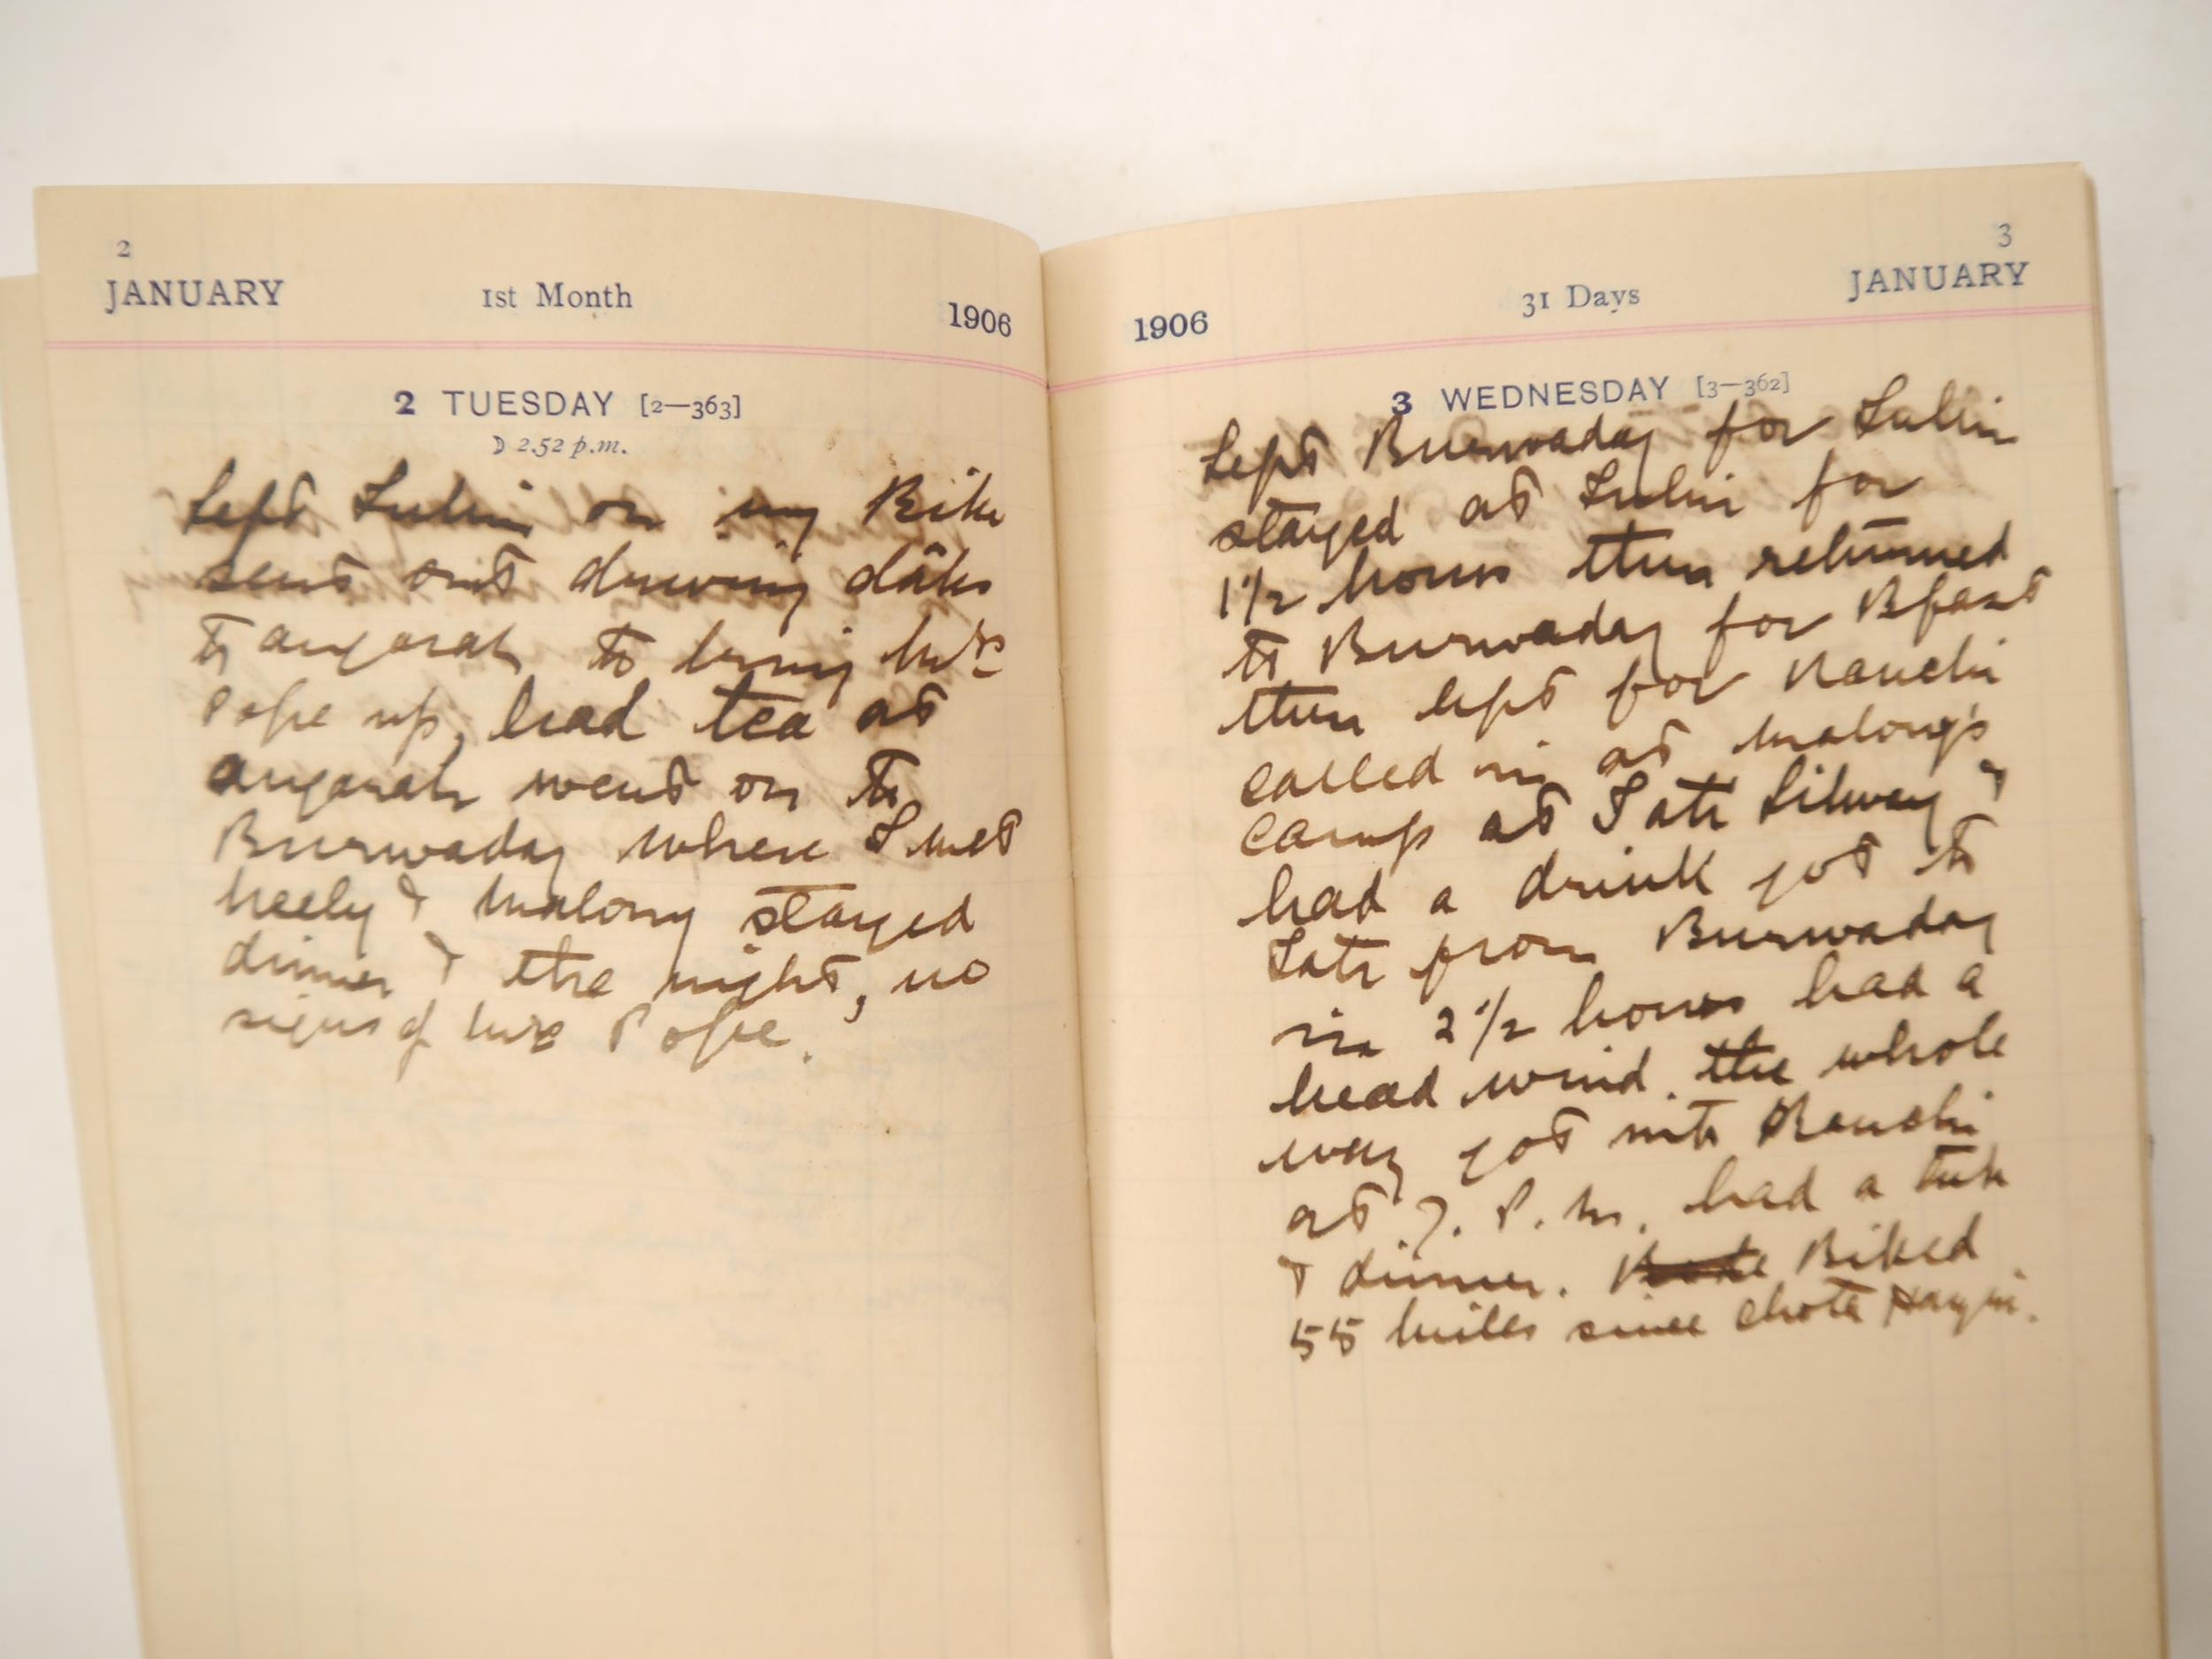 2
JANUARY 1st Month 1906
2 TUESDAY [2—363]
☽ 2.52 p.m.
Left Lulin on my Bike
sent out driving dâks
to angarah to bring Mrs
Pope up, had tea at
angarah went on to
Burwaday where I met
neely & Malony stayed
dinner & the night, no
signs of Mrs Pope.
3
1906 31 Days JANUARY
3 WEDNESDAY [3—362]
Left Burwaday for Lulin
stayed at Lulin for
1½ hours then returned
to Burwaday for Bfast
then left for Ranchi
called in at Malong's
camp at Tati &
had a drink got to
Tati from Burwaday
in 2½ hours had a
head wind the whole
way got into Ranchi
at 7. P. M. had a tub
& dinner. Biked
55 miles since chota Hazri.